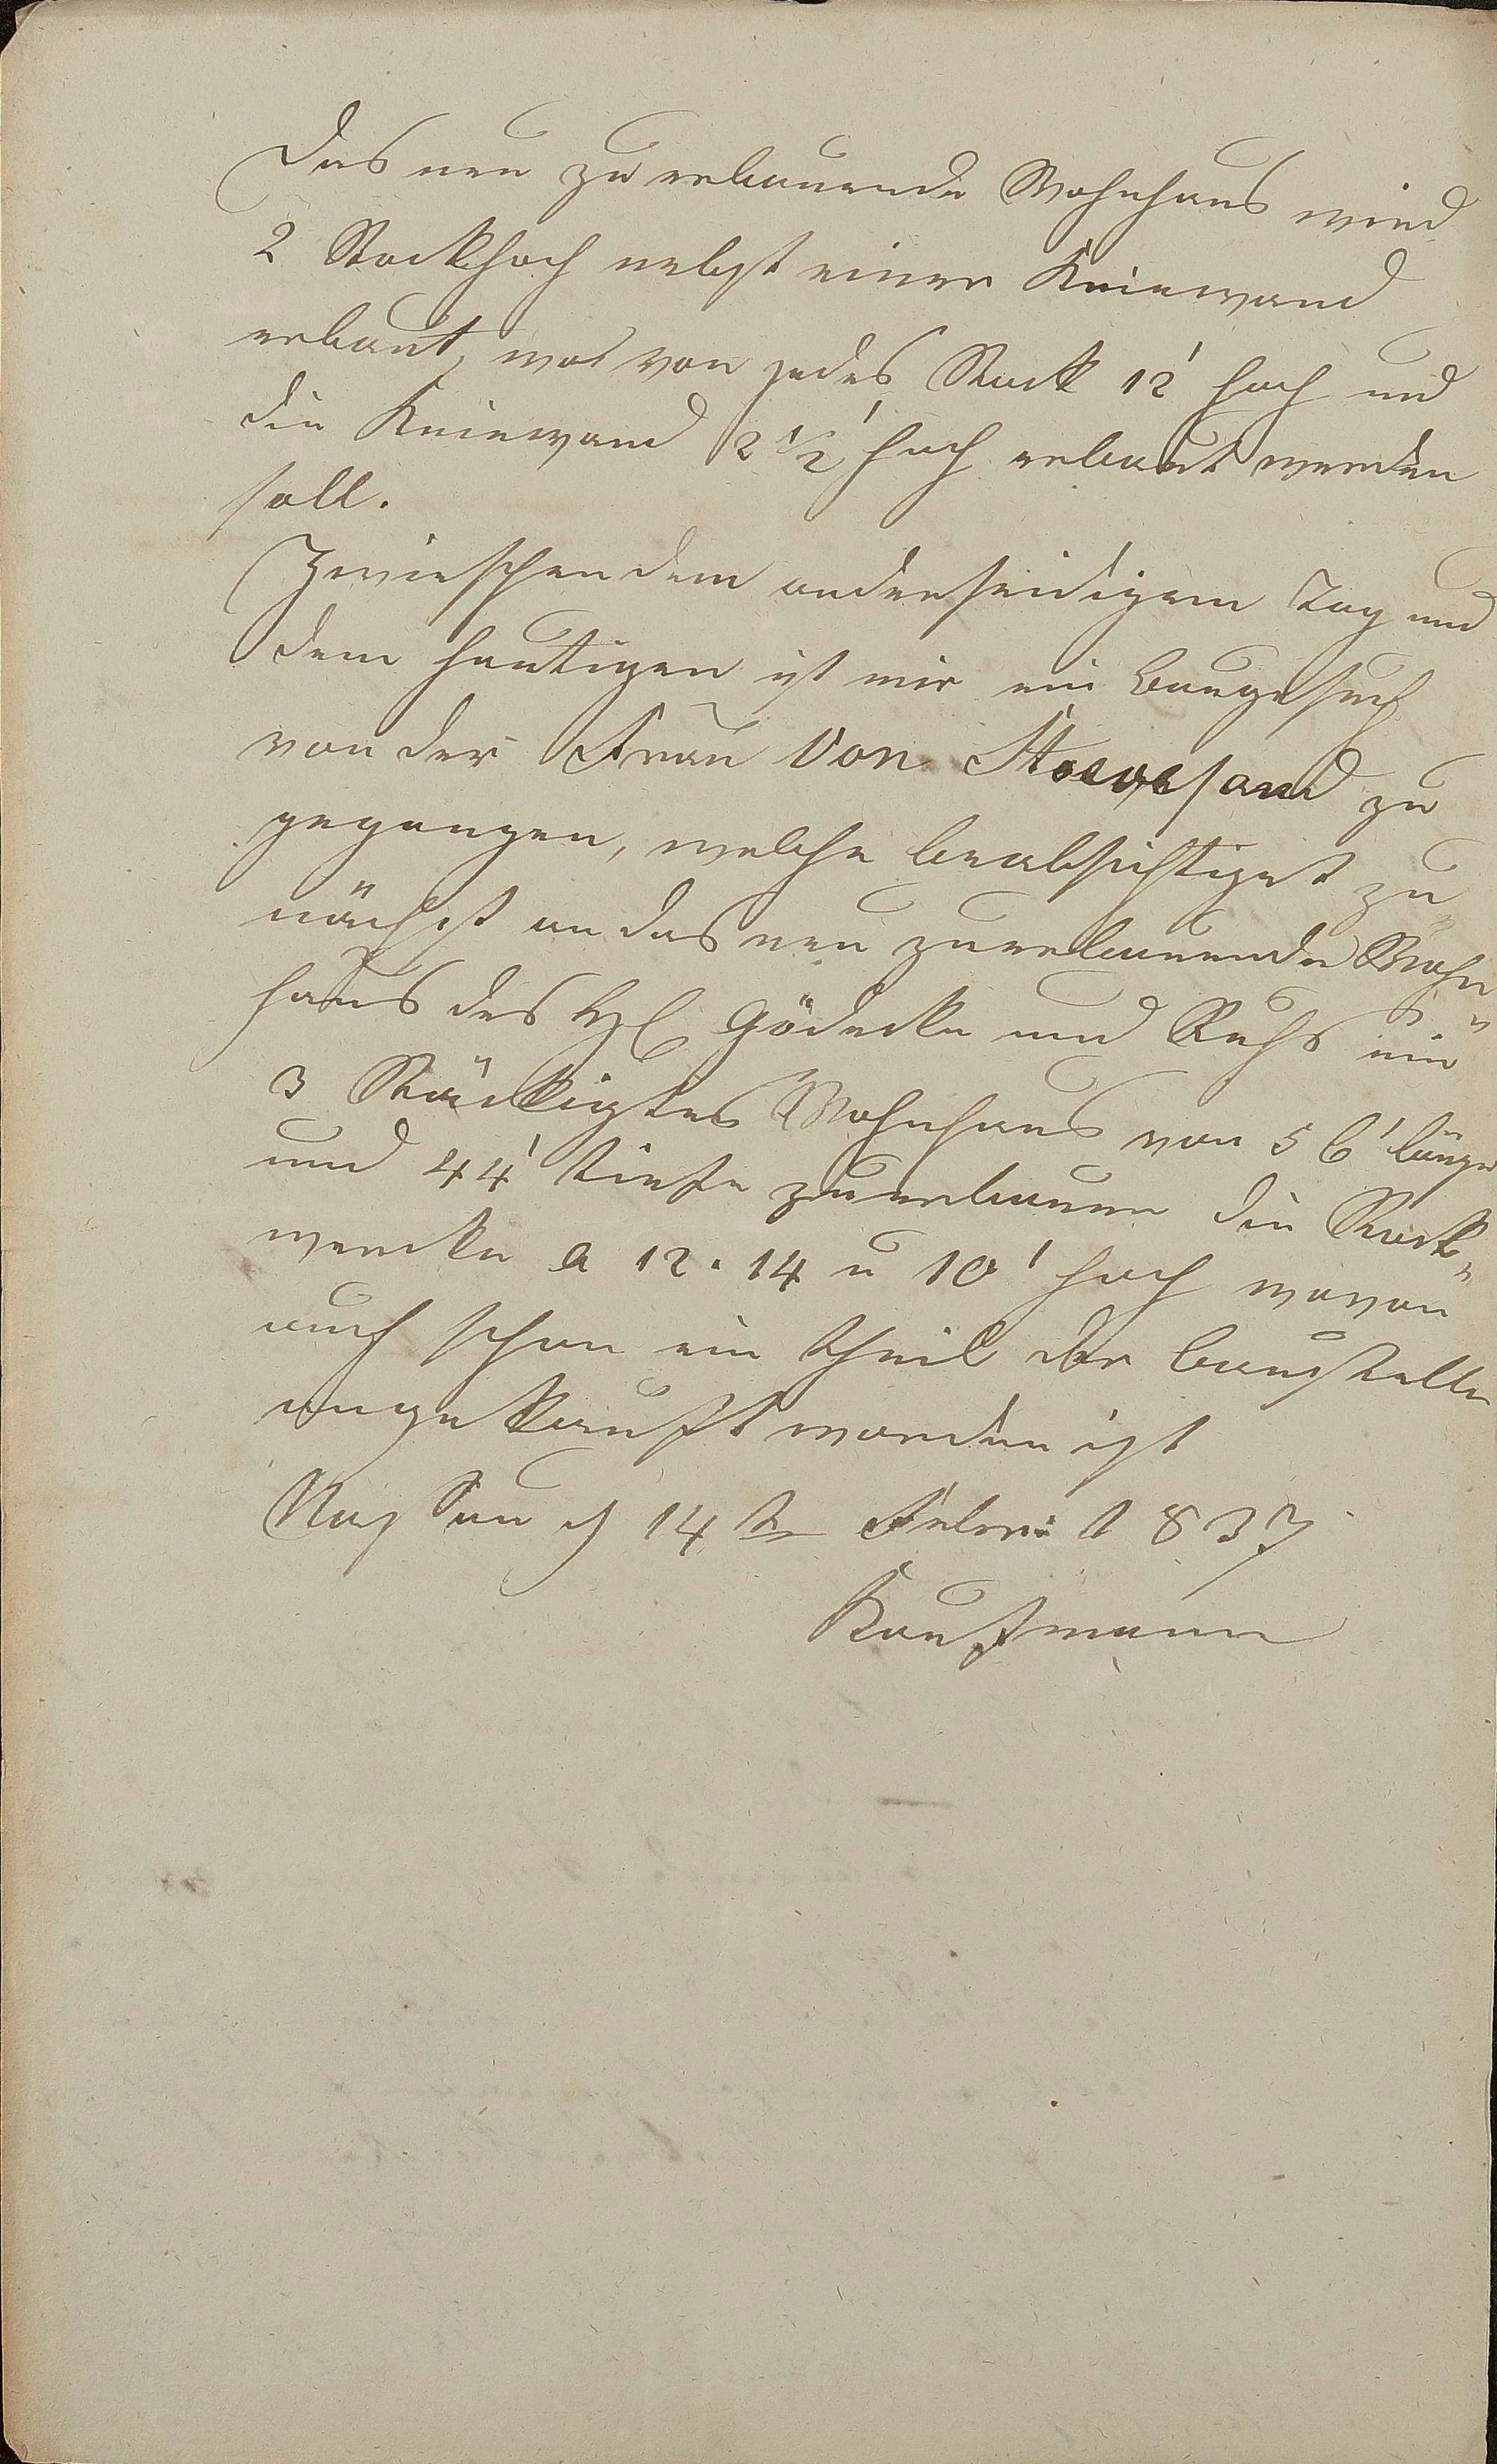 Das neu zu erbauende Wohnhaus wird
2 Stockhoch nebst einer Kniewand
erbaut, wo von jedes Stock 12' hoch und
die Kniewand 2 1/2' hoch erbaut werden
soll.
Zwieschen dem anderseidigem Tag und
dem heutigen ist mir ein Baugesuch
von der Frau Von zu
gegangen, welche beabsichtiget zu
nächst an das neu zuerbauende Wohn"
haus des H Gödecke und Ruhs ein"
3 Stöckigtes Wohnhaus von 56' länge
und 44' tiefe zuerbauen die Stock"
wercke a 12. 14 u 10' hoch wovon
auch schon ein theil der baustelle
angekauft worden ist
14 te Febr: 1837
Kaufmann